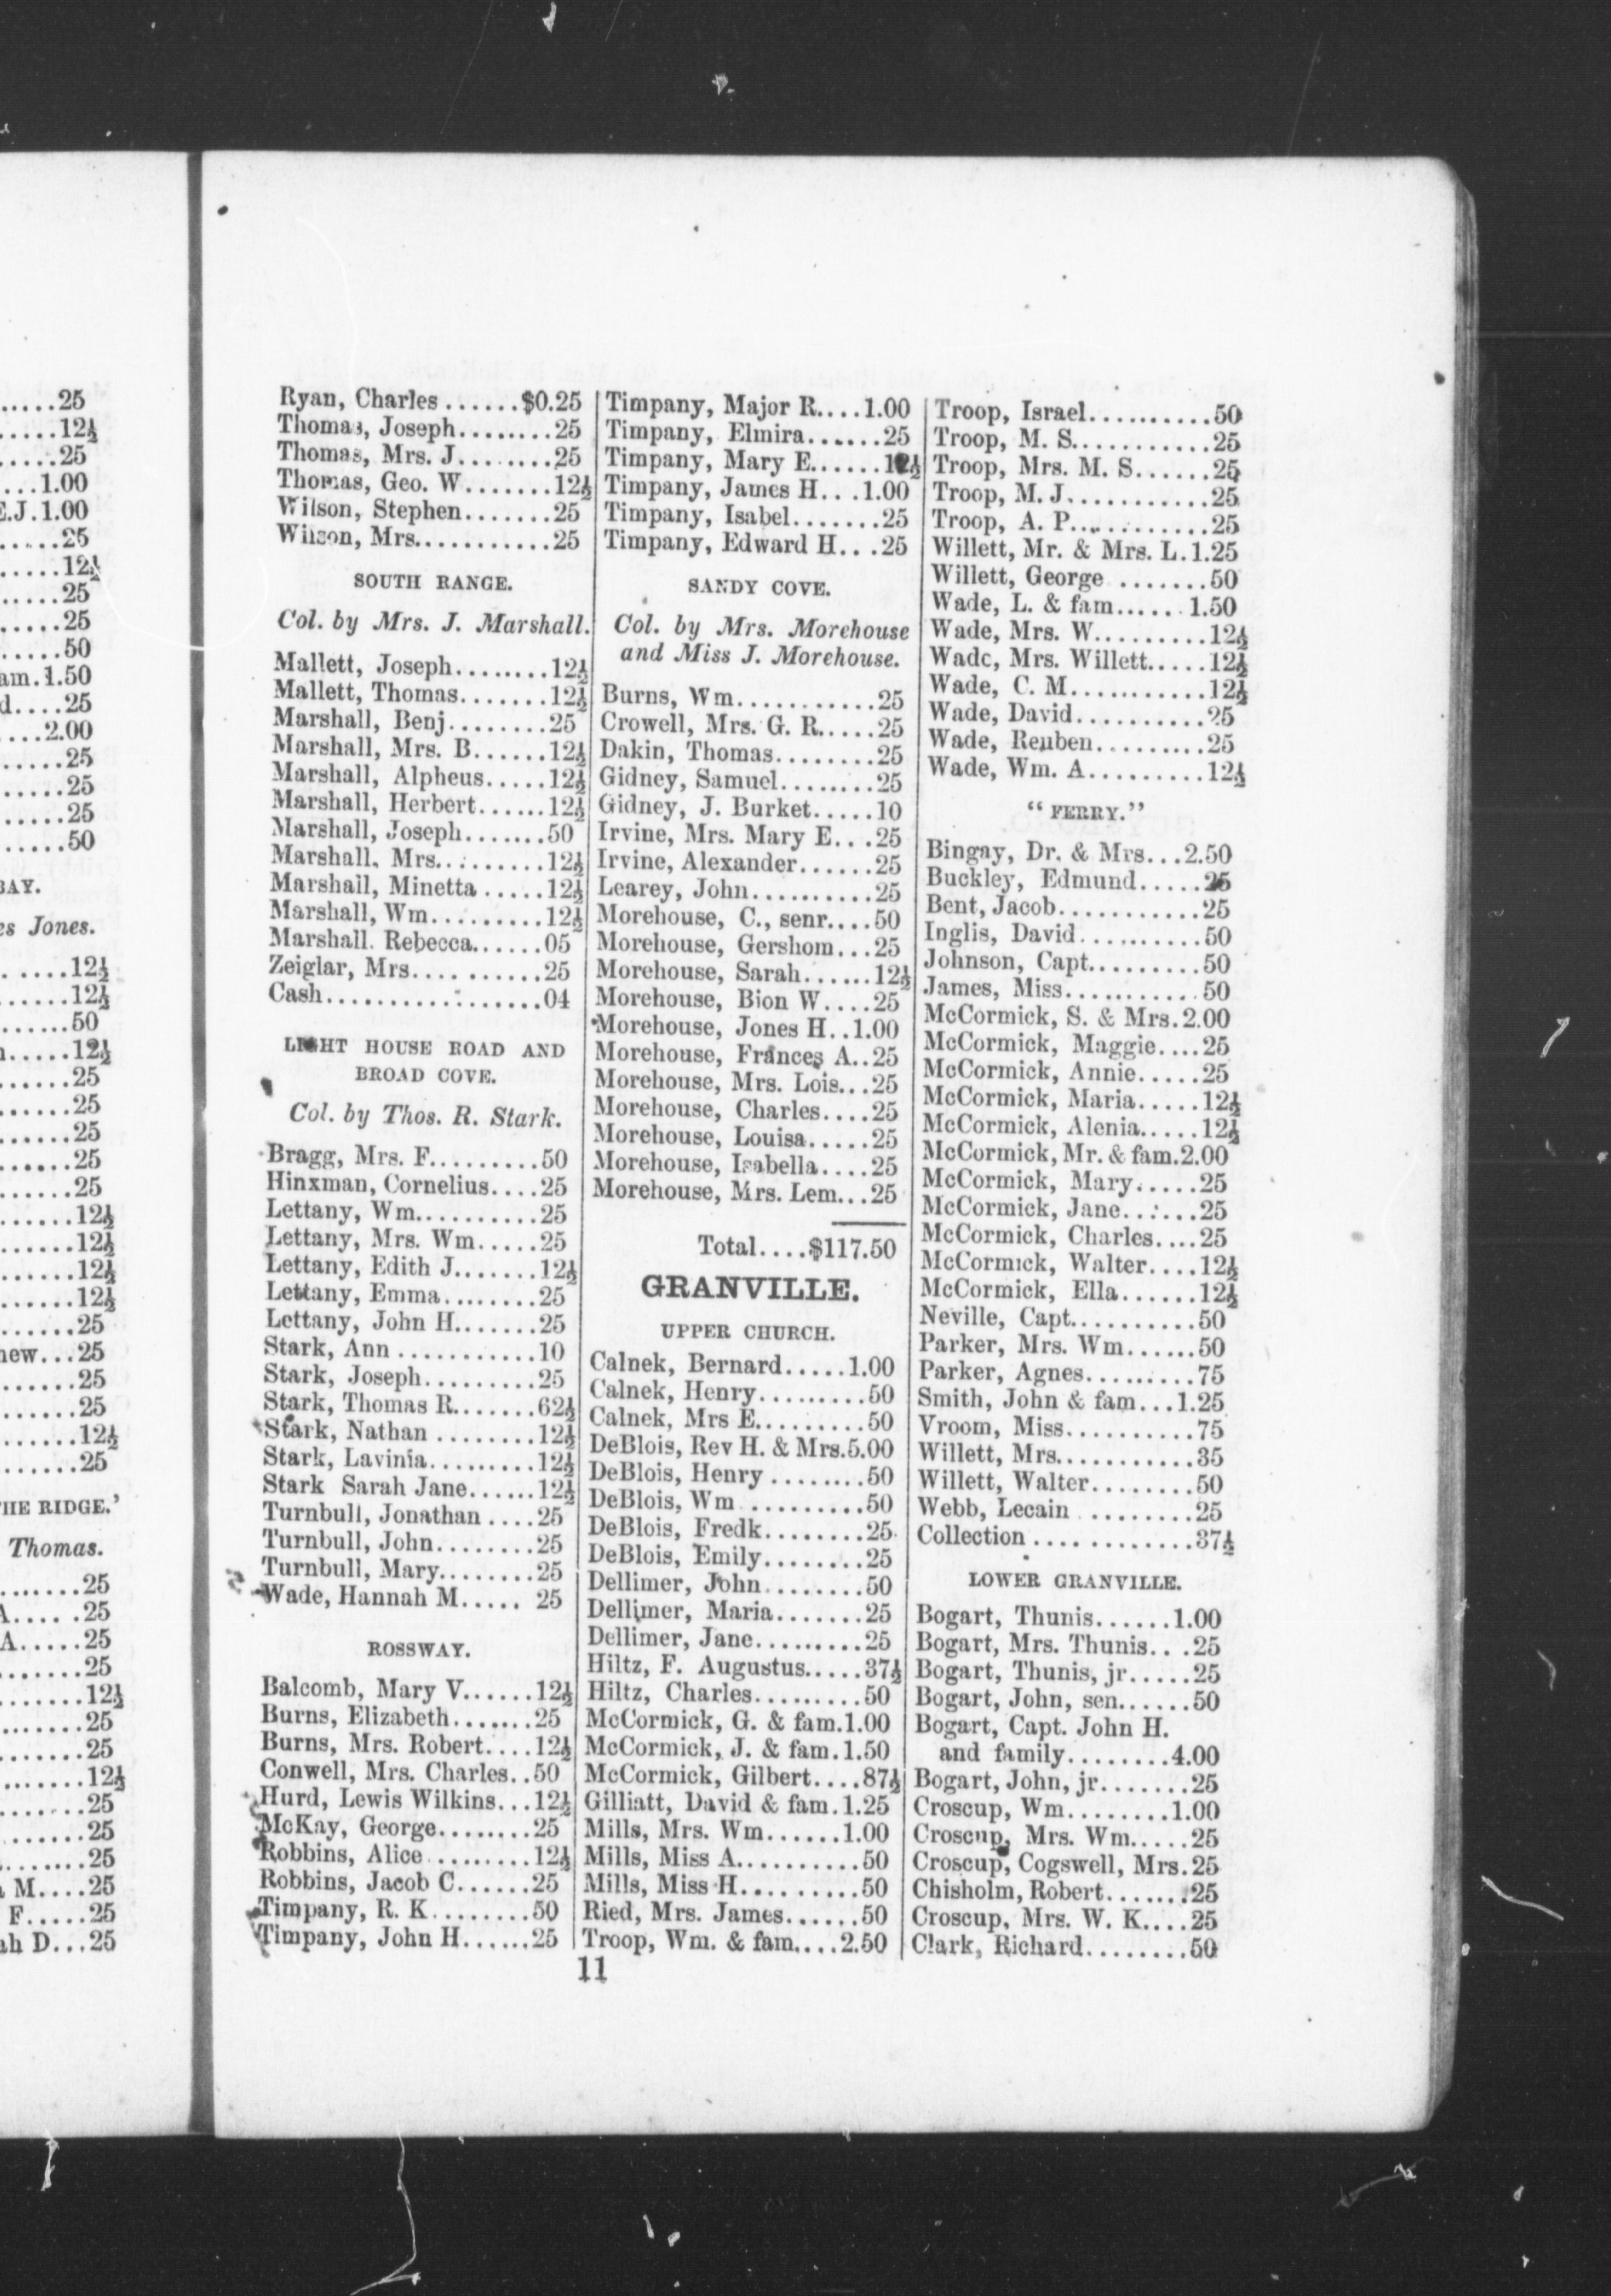 .....25
.....12½
.....25
...1.00
E.J.1.00
.....25
.....12½
.....25
.....25
.....50
am.1.50
d....25
...2.00
.....25
.....25
.....25
.....50
BAY.
es Jones.
......12½
......12½
......50
.....12½
......25
......25
......25
......25
......25
......12½
......12½
......12½
......12½
......25
new...25
......25
......25
......12½
......25
THE RIDGE.'
Thomas.
.......25
A.....25
A.....25
.......25
.......12½
.......25
.......25
.......12½
.......25
.......25
.......25
M....25
F.....25
ah D...25
Ryan, Charles ......$0.25
Thomas, Joseph.........25
Thomas, Mrs. J.........25
Thomas, Geo. W.......12½
Wilson, Stephen.......25
Wilson, Mrs...........25
SOUTH RANGE.
Col. by Mrs. J. Marshall.
Mallett, Joseph........12½
Mallett, Thomas.......12½
Marshall, Benj.........25
Marshall, Mrs. B......12½
Marshall, Alpheus.....12½
Marshall, Herbert......12½
Marshall, Joseph.......50
Marshall, Mrs.........12½
Marshall, Minetta .....12½
Marshall, Wm.........12½
Marshall. Rebecca......05
Zeiglar, Mrs..........25
Cash..................04
LIGHT HOUSE ROAD AND
BROAD COVE.
Col. by Thos. R. Stark.
Bragg, Mrs. F.........50
Hinxman, Cornelius....25
Lettany, Wm..........25
Lettany, Mrs. Wm.....25
Lettany, Edith J.......12½
Lettany, Emma.........25
Lettany, John H.......25
Stark, Ann ............10
Stark, Joseph.........25
Stark, Thomas R.......62½
Stark, Nathan ........12½
Stark, Lavinia.........12½
Stark Sarah Jane......12½
Turnbull, Jonathan ....25
Turnbull, John........25
Turnbull, Mary........25
Wade, Hannah M..... 25
ROSSWAY.
Balcomb, Mary V......12½
Burns, Elizabeth.......25
Burns, Mrs. Robert....12½
Conwell, Mrs. Charles..50
Hurd, Lewis Wilkins...12½
McKay, George........25
Robbins, Alice.........12½
Robbins, Jacob C......25
Timpany, R. K........50
Timpany, John H......25
Timpany, Major R....1.00
Timpany, Elmira......25
Timpany, Mary E......12½
Timpany, James H...1.00
Timpany, Isabel.......25
Timpany, Edward H...25
SANDY COVE.
Col. by Mrs. Morehouse
and Miss J. Morehouse.
Burns, Wm............25
Crowell, Mrs. G. R.....25
Dakin, Thomas........25
Gidney, Samuel.........25
Gidney, J. Burket.....10
Irvine, Mrs. Mary E...25
Irvine, Alexander......25
Learey, John..........25
Morehouse, C., senr....50
Morehouse, Gershom...25
Morehouse, Sarah......12½
Morehouse, Bion W....25
Morehouse, Jones H..1.00
Morehouse, Frances A..25
Morehouse, Mrs. Lois...25
Morehouse, Charles....25
Morehouse, Louisa.....25
Morehouse, Isabella....25
Morehouse, Mrs. Lem...25
Total....$117.50
GRANVILLE.
UPPER CHURCH.
Calnek, Bernard.....1.00
Calnek, Henry.........50
Calnek, Mrs E.........50
DeBlois, Rev H. & Mrs.5.00
DeBlois, Henry ........50
DeBlois, Wm ..........50
DeBlois, Fredk........25
DeBlois, Emily........25
Dellimer, John........50
Dellimer, Maria.......25
Dellimer, Jane.........25
Hiltz, F. Augustus.....37½
Hiltz, Charles.........50
McCormick, G. & fam.1.00
McCormick, J. & fam.1.50
McCormick, Gilbert....87½
Gilliatt, David & fam.1.25
Mills, Mrs. Wm......1.00
Mills, Miss A..........50
Mills, Miss H..........50
Ried, Mrs. James......50
Troop, Wm. & fam....2.50
Troop, Israel..........50
Troop, M. S...........25
Troop, Mrs. M. S......25
Troop, M. J............25
Troop, A. P............25
Willett, Mr. & Mrs. L.1.25
Willett, George .......50
Wade, L. & fam......1.50
Wade, Mrs. W.........12½
Wade, Mrs. Willett.....12½
Wade, C. M...........12½
Wade, David...........25
Wade, Reuben.........25
Wade, Wm. A.........12½
“ FERRY.”
Bingay, Dr. & Mrs...2.50
Buckley, Edmund.....25
Bent, Jacob............25
Inglis, David..........50
Johnson, Capt.........50
James, Miss............50
McCormick, S. & Mrs.2.00
McCormick, Maggie....25
McCormick, Annie.....25
McCormick, Maria.....12½
McCormick, Alenia.....12½
McCormick, Mr. & fam.2.00
McCormick, Mary.....25
McCormick, Jane......25
McCormick, Charles....25
McCormick, Walter....12½
McCormick, Ella......12½
Neville, Capt..........50
Parker, Mrs. Wm......50
Parker, Agnes.........75
Smith, John & fam...1.25
Vroom, Miss...........75
Willett, Mrs...........35
Willett, Walter........50
Webb, Lecain .........25
Collection .............37½
LOWER GRANVILLE.
Bogart, Thunis......1.00
Bogart, Mrs. Thunis...25
Bogart, Thunis, jr.....25
Bogart, John, sen......50
Bogart, Capt. John H.
and family........4.00
Bogart, John, jr.......25
Croscup, Wm........1.00
Croscup, Mrs. Wm.....25
Croscup, Cogswell, Mrs.25
Chisholm, Robert.......25
Croscup, Mrs. W. K....25
Clark, Richard........50
11